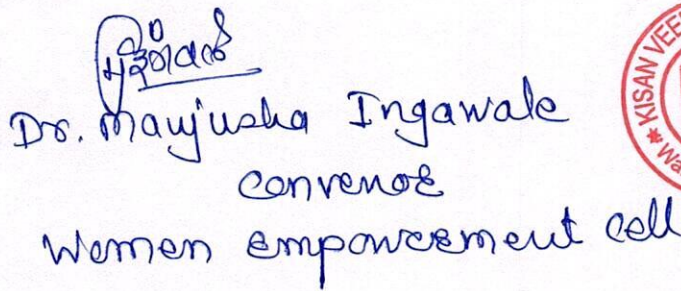 Dr. Manjusha Ingawale
Convenor
Women Empowerment cell
★ KISAN VEE
Wa